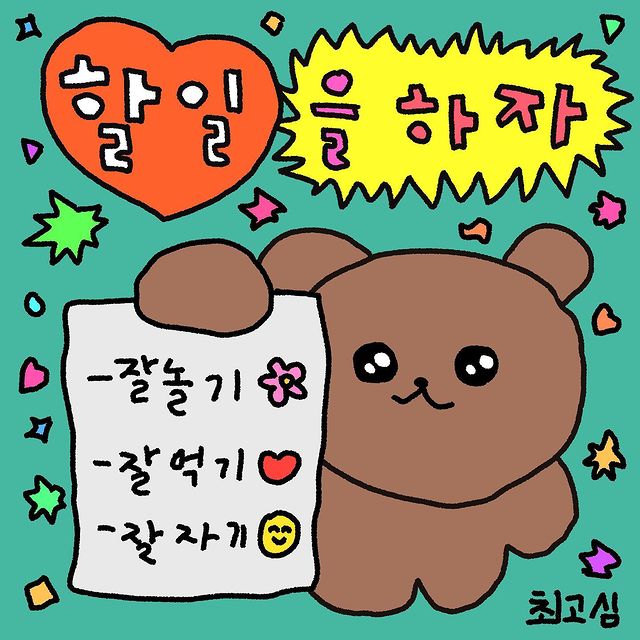 할일을하자
-잘놀기
-잘먹기
-잘자기
최고심